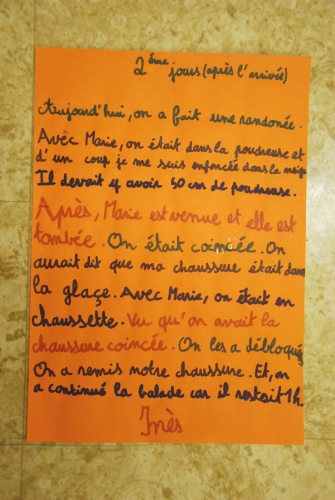 2ème jours (après l'arrivée)
Aujourd'hui, on a fait une randonée.
Avec Marie, on était dans la poudreuse et
d'un coup je me suis enfoncée dans la neige
Il devait y avoir 50 cm de poudreuse.
Après, Marie est venue et elle est
tombée. On était coincée. On
aurait dit que ma chaussure était dans
la glaçe. Avec Marie, on était en
chaussette. Vu qu'on avait la
chaussure coincée. On les a débloqués
On a remis notre chaussure. Et, on
a continué la balade car il restait 1h.
Inès